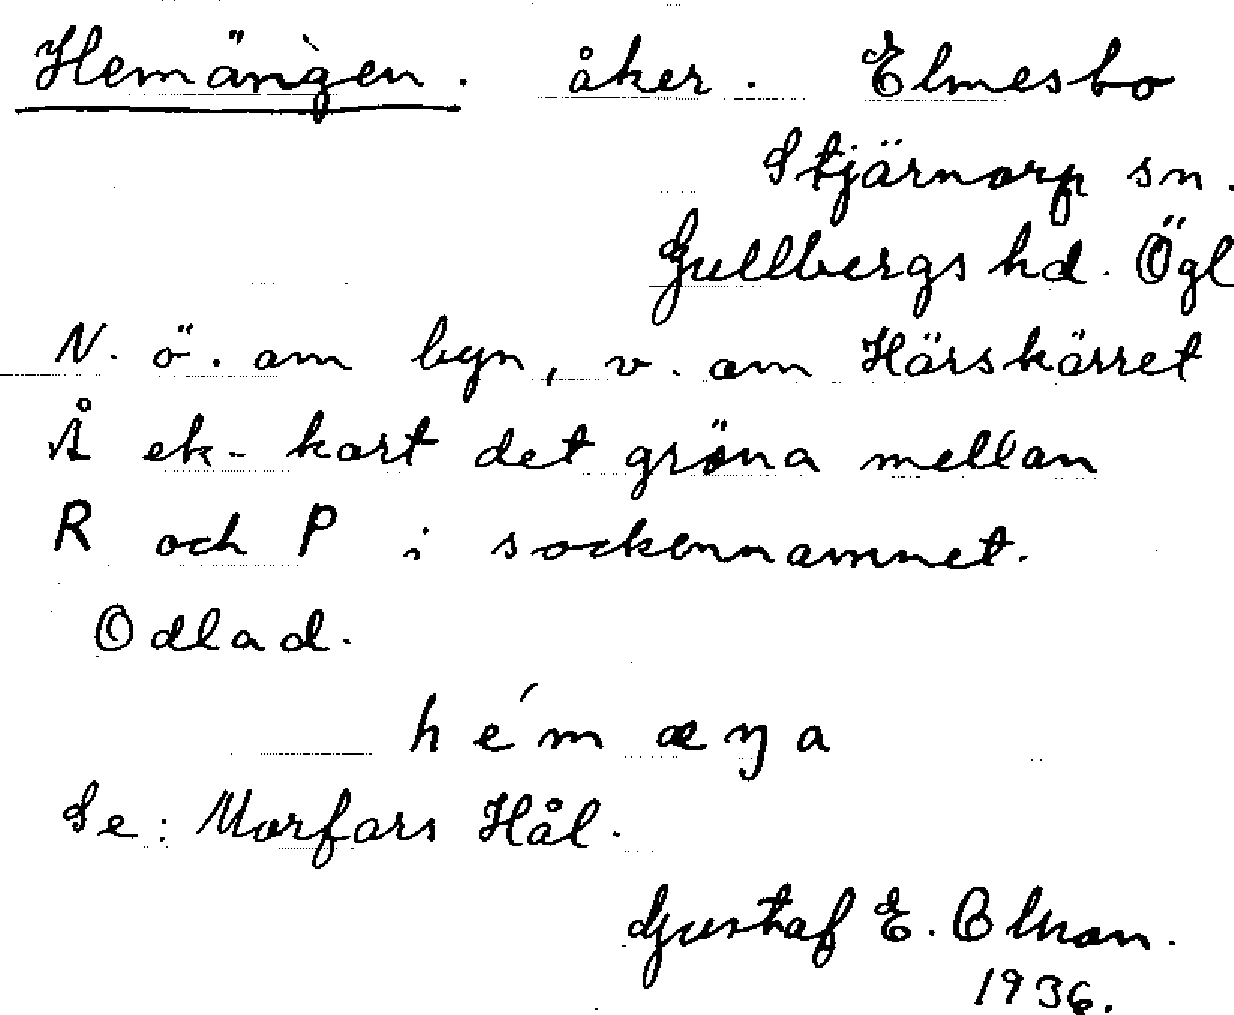 Hemängen. åker. Elmesbo
Stjärnorp sn.
Gullbergs hd. Ögl
N. ö. om byn, v. om Härskärret
Å ek- kart det gröna mellan
R och P i sockennamnet.
Odlad.
hémæŋa
Se: Morfars Hål.
Gustaf E. Olson.
1936.